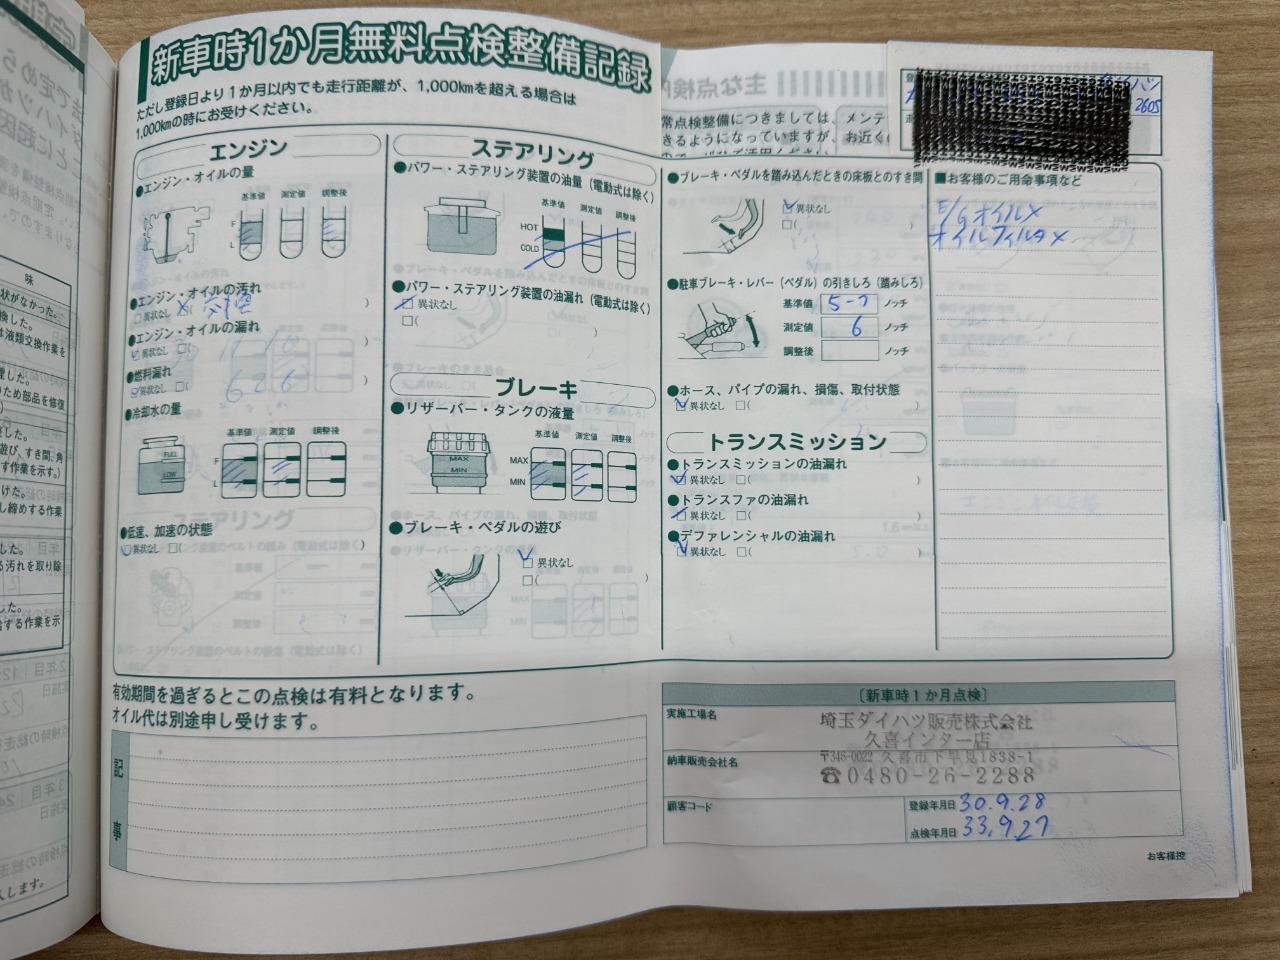 新車時1か月無料点検整備記録
ただし登録日より1か月以内でも走行距離が、1,000kmを超える場合は
1,000kmの時にお受けください。
エンジン
●エンジン・オイルの量
基準値 測定値 調整後
F
L
●エンジン・オイルの汚れ
□異状なし
●エンジン・オイルの漏れ
□異状なし □( )
●燃料漏れ
□異状なし □( )
●冷却水の量
基準値 測定値 調整後
FULL
LOW
F
L
●低速、加速の状態
□異状なし □( )
ステアリング
●パワー・ステアリング装置の油量（電動式は除く）
基準値 測定値 調整後
HOT
COLD
●パワー・ステアリング装置の油漏れ（電動式は除く）
□異状なし
□( )
ブレーキ
●リザーバー・タンクの液量
基準値 測定値 調整後
MAX
MIN
MAX
MIN
●ブレーキ・ペダルの遊び
□異状なし
□( )
主な点検
常点検整備につきましては、メンテ
きるようになっていますが、お近く
●ブレーキ・ペダルを踏み込んだときの床板とのすき間
□異状なし
□( )
●駐車ブレーキ・レバー（ペダル）の引きしろ（踏みしろ）
基準値 5-7 ノッチ
測定値 6 ノッチ
調整後 ノッチ
●ホース、パイプの漏れ、損傷、取付状態
□異状なし □( )
トランスミッション
●トランスミッションの油漏れ
□異状なし □( )
●トランスファの油漏れ
□異状なし □( )
●デファレンシャルの油漏れ
□異状なし □( )
2605
■お客様のご用命事項など
E/GオイルX
オイルフィルタX
有効期間を過ぎるとこの点検は有料となります。
オイル代は別途申し受けます。
記事
〔新車時1か月点検〕
実施工場名
埼玉ダイハツ販売株式会社
久喜インター店
納車販売会社名
〒346-0022 久喜市下早見1838-1
☎0480-26-2288
顧客コード
登録年月日 30.9.28
点検年月日 33.9.27
お客様控
味
状がなかった。
換した。
は液類交換作業を
ため部品を修復